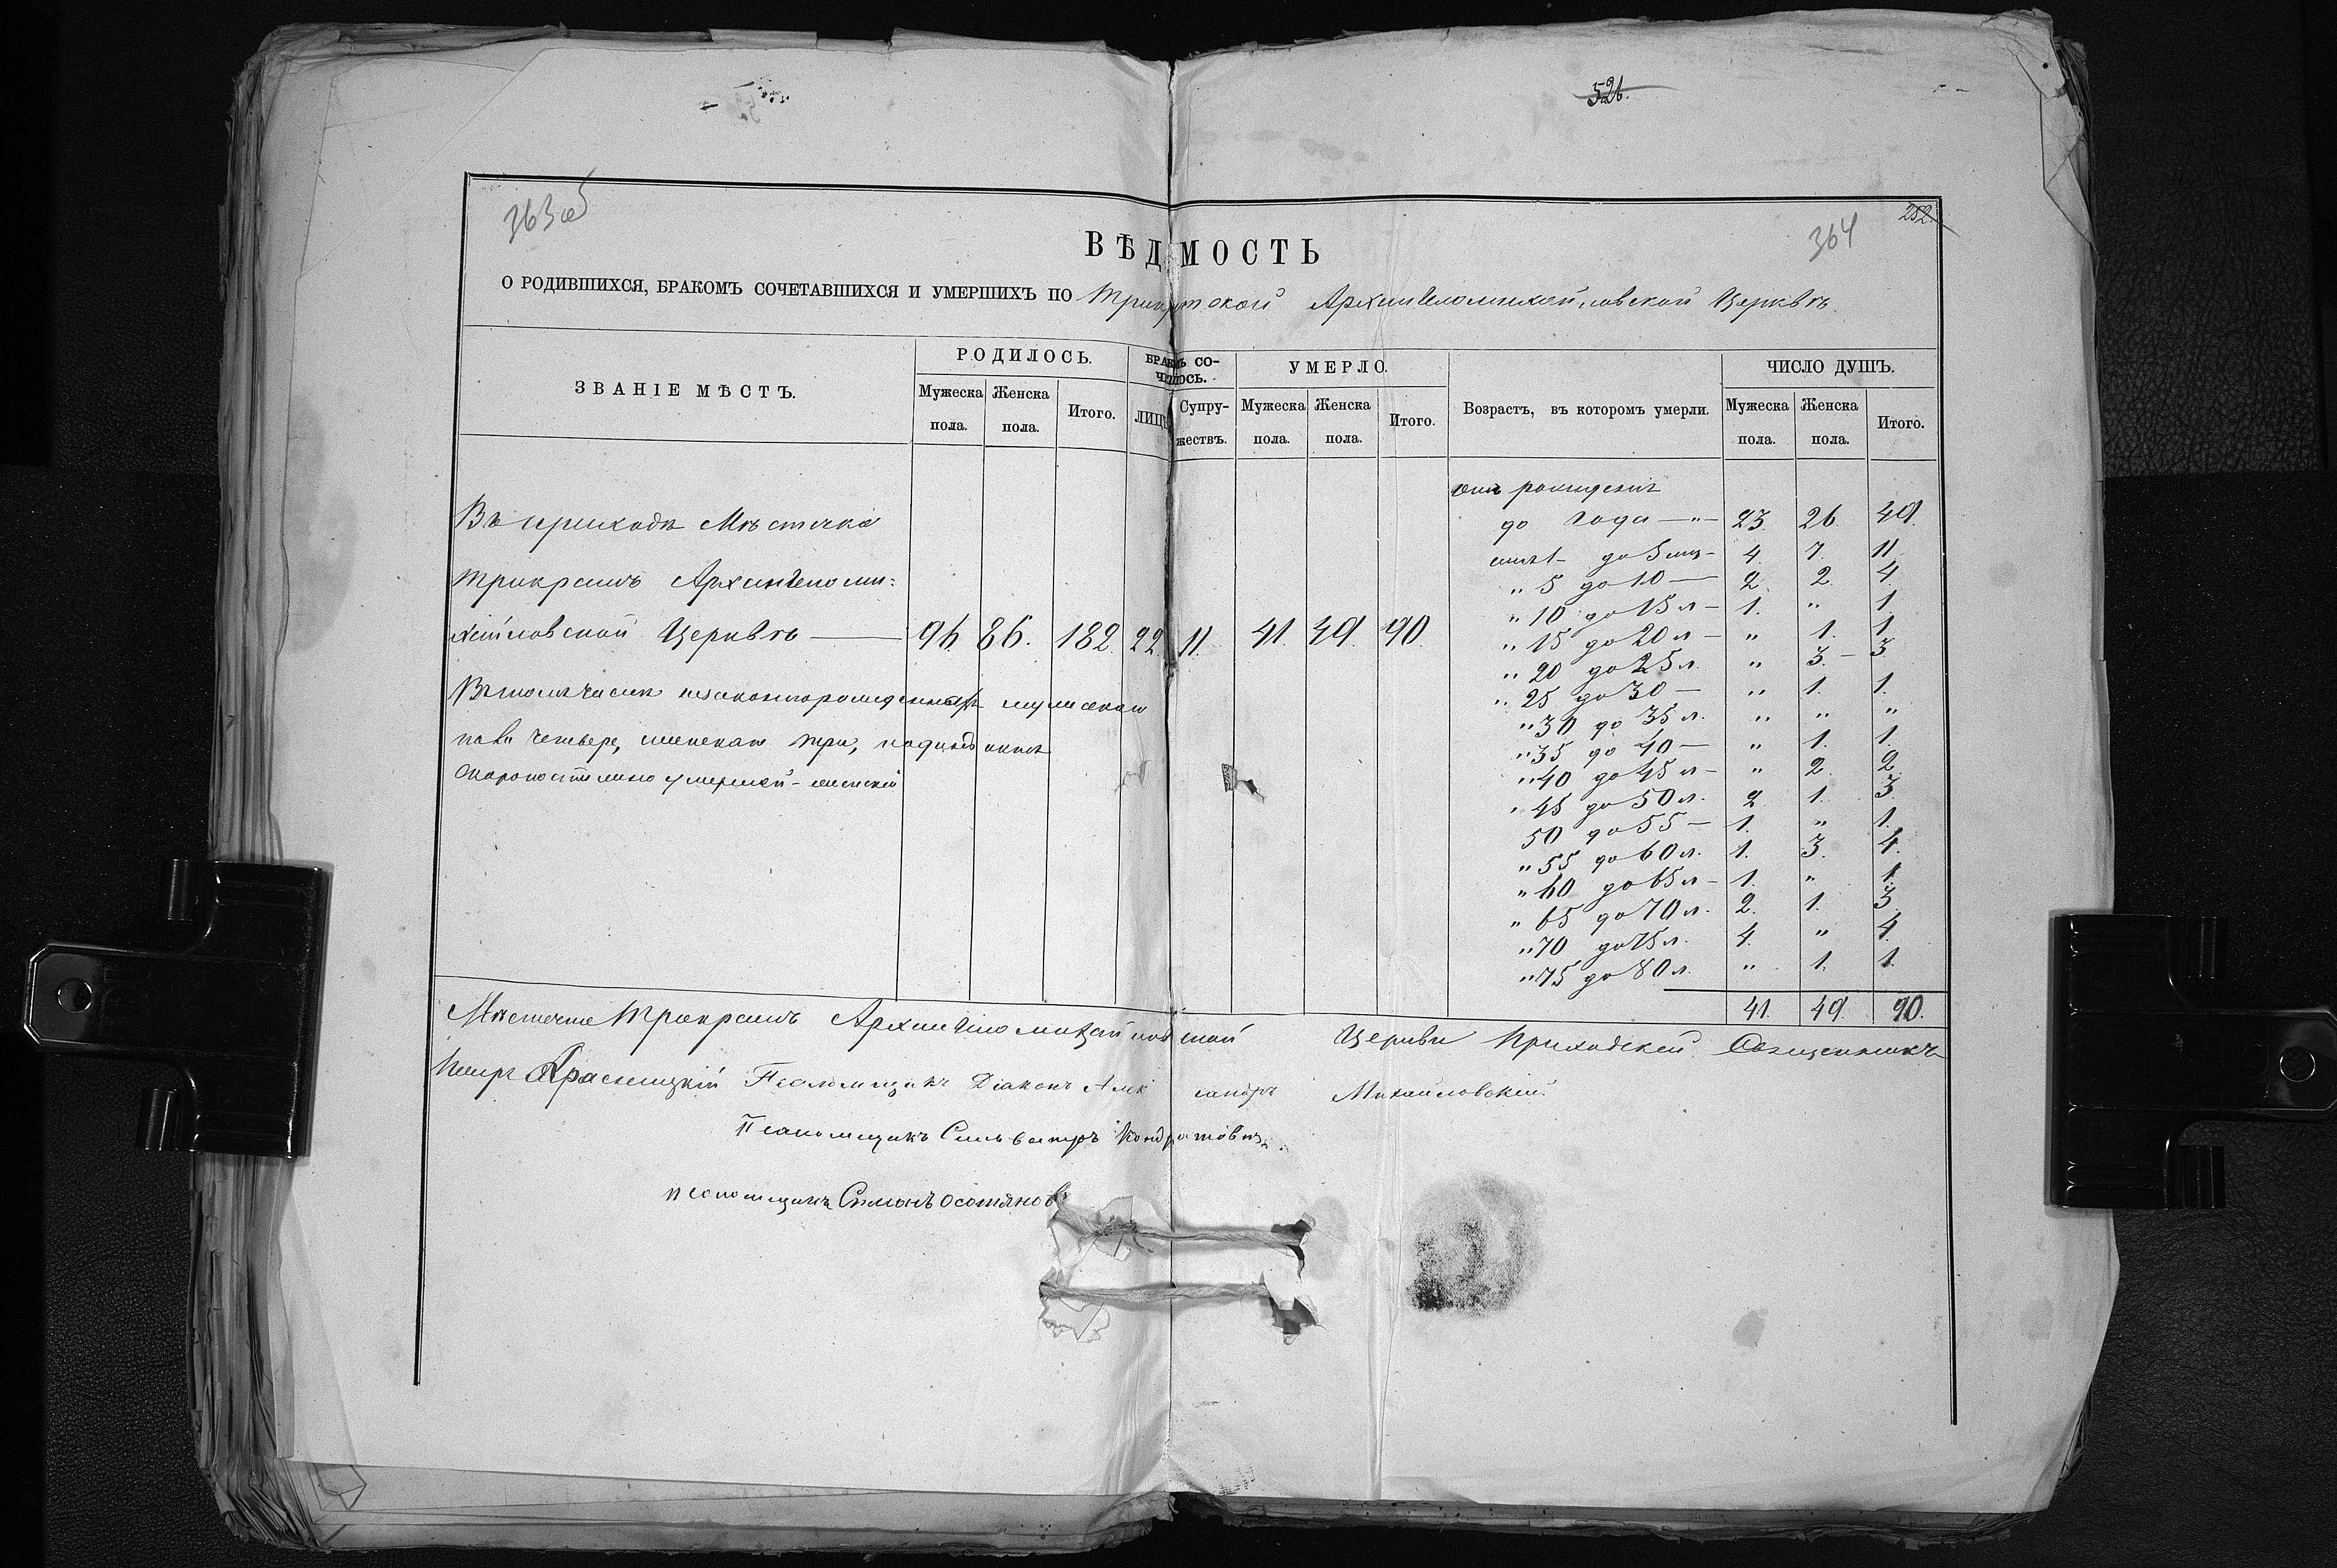 526.
363 об
252.
364
ВѢДОМОСТЬ
О РОДИВШИХСЯ, БРАКОМЪ СОЧЕТАВШИХСЯ И УМЕРШИХЪ ПО Трикратской Архангеломихайловской Церквѣ.
ЗВАНІЕ МѢСТЪ.
РОДИЛОСЬ.
БРАКОМЪ СО-
ЧЕТАЛОСЬ.
УМЕРЛО.
Возрастъ, въ которомъ умерли.
ЧИСЛО ДУШЪ.
Мужеска пола. Женска пола. Итого. ЛИЦЪ Супружествъ. Мужеска пола. Женска пола. Итого. Мужеска пола. Женска пола. Итого.
Въ приходѣ Мѣстечка
Трикратъ Архангеломи=
хайловской Церквѣ — 96. 86. 182. 22. 11. 41. 49. 90.
Въ томъ числѣ незаконорожденныхъ мужеска
пола четверо, женска три,
Скоропостижно умершей - женскій
отъ рожденія
до года — " — 23. 26. 49.
отъ 1 - до 5 — 4. 7. 11.
" 5 до 10 — 2. 2. 4.
" 10 до 15 л — 1. " 1.
" 15 до 20 л — " 1. 1.
" 20 до 25 л. " 3. — 3.
" 25 до 30 — " 1. 1.
" 30 до 35 л. " " "
" 35 до 40 — " 1. 1.
" 40 до 45 л — " 2. 2.
" 45 до 50 л. 2. 1. 3.
50 до 55 — 1. " 1.
" 55 до 60 л. 1. 3. 4.
" 60 до 65 л — 1. " 1.
" 65 до 70 л. 2. 1. 3.
" 70 до 75 л. 4. " 4.
" 75 до 80 л. " 1. 1.
41. 49. 90.
Мѣстечка Трикратъ Архангеломихайловской Церкви Приходскій Священникъ
Петръ Красницкій Псаломщикъ Діаконъ Александръ Михайловскій.
Псаломщикъ Сильвестръ Кондратовичъ.
псаломщикъ Симонъ